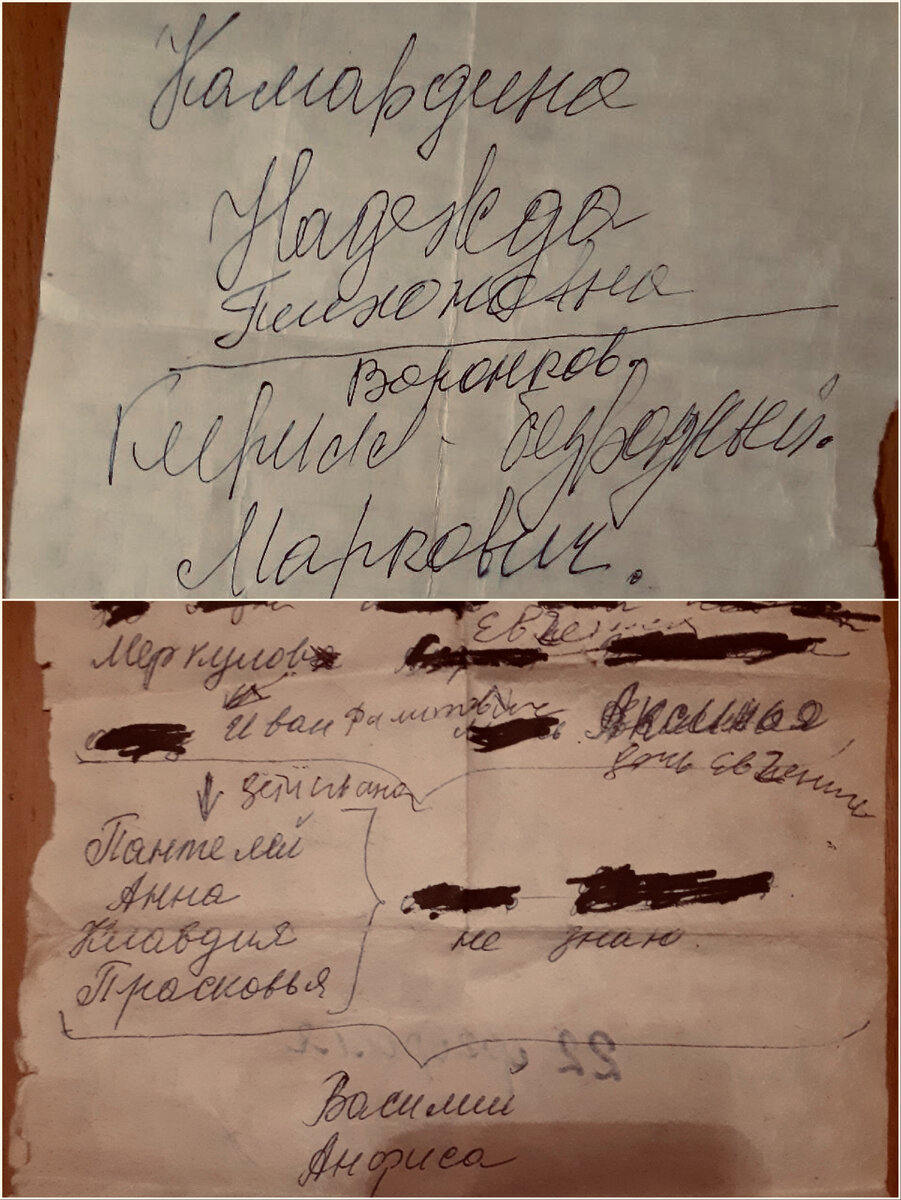 Камардина
Надежда
Тихоновна
Воронков.
Кирилл - безродный.
Маркович.
Евгения
Меркулов
Иван Филиппович
Аксинья,
дочь Евгении
дети Ивана
Пантелей
Анна
Клавдия
Прасковья
не знаю.
22
Василий
Анфиса